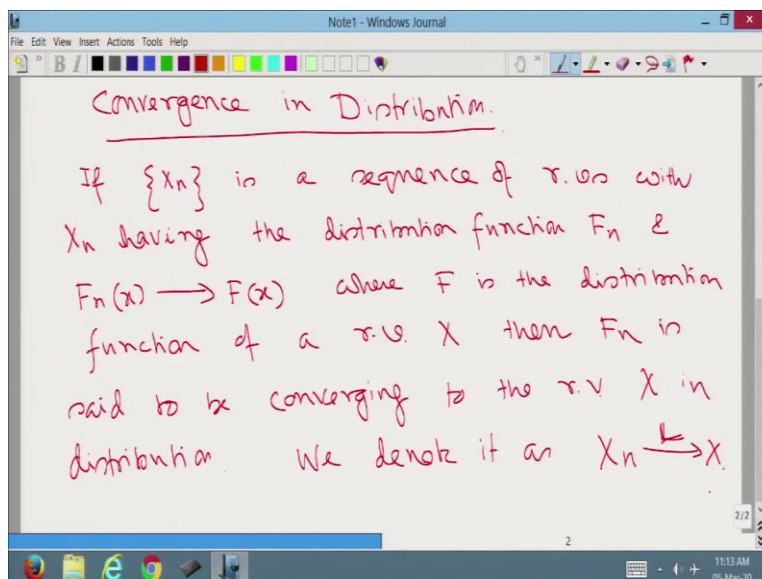 Note1 - Windows Journal
File Edit View Insert Actions Tools Help
B I
Convergence in Distribution.
If {Xn} is a sequence of r.vs with
Xn having the distribution function Fn &
Fn(x) → F(x) where F is the distribution
function of a r.v. X then Fn is
said to be converging to the r.v X in
distribution. We denote it as Xn L→ X.
2/2
2
11:13 AM
05-Mar-20